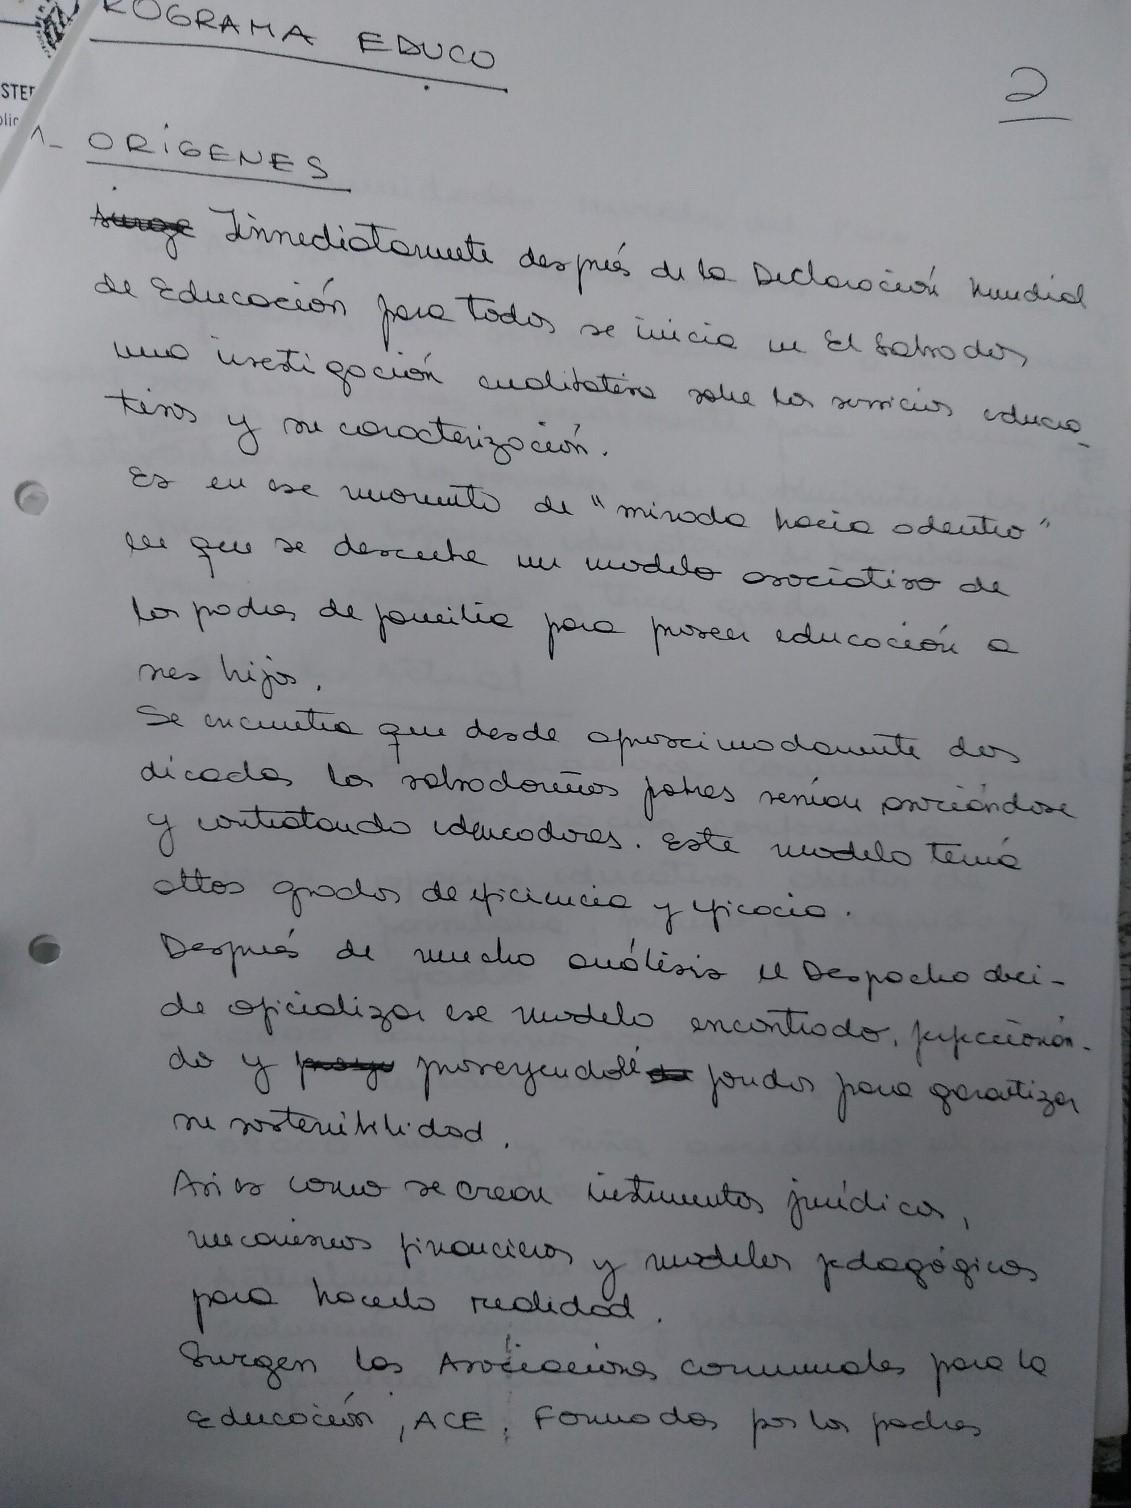 ROGRAMA EDUCO
2
STER
blic
1- ORÍGENES
Surge Inmediatamente después de la Declaración Mundial
de Educación para Todos se inicia en El Salvador,
una investigación cualitativa sobre los servicios educa-
tivos y su caracterización.
Es en ese momento de "mirada hacia adentro"
en que se descubre un modelo asociativo de
los padres de familia para proveer educación a
sus hijos.
Se encuentra que desde aproximadamente dos
décadas los salvadoreños padres venían asociándose
y contratando educadores. Este modelo tenía
altos grados de eficiencia y eficacia.
Después de mucho análisis el Despacho deci-
de oficializar ese modelo encontrado, perfeccionán-
do y proveyendolé fondos para garantizar
su sostenibilidad.
Así es como se crean instrumentos jurídicos,
mecanismos financieros y modelos pedagógicos
para hacerlo realidad.
Surgen las Asociaciones comunales para la
Educación, ACE, Formadas por los padres